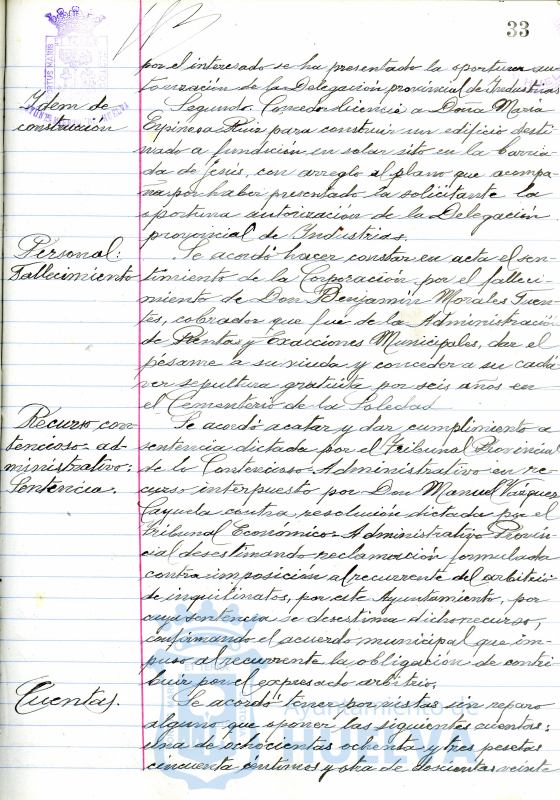 33
por el interesado se ha presentado la oportuna au-
torización de la Delegación provincial de Industrias
Idem de
construcción
Segundo. Conceder licencia a Doña María
Espinosa Ruiz para construir un edificio desti-
nado a fundición en solar sito en la barria-
da de Jesús, con arreglo al plano que acompa-
ña por haber presentado la solicitante la
oportuna autorización de la Delegación
provincial de Industrias.
Personal:
Fallecimiento
Se acordó hacer constar en acta el sen-
timiento de la Corporación por el falleci-
miento de Don Benjamín Morales Fuen-
tes, cobrador que fue de la Administración
de Rentas y Exacciones Municipales, dar el
pésame a su viuda y conceder a su cadá-
ver sepultura gratuita por seis años en
el Cementerio de la Soledad
Recurso con-
tencioso-ad-
ministrativo:
Sentencia.
Se acordó acatar y dar cumplimiento a
sentencia dictada por el Tribunal Provincial
de lo Contencioso-Administrativo en re-
curso interpuesto por Don Manuel Vázquez
Cayuela contra resolución dictada por el
Tribunal Económico-Administrativo Provin-
cial desestimando reclamación formulada
contra imposición al recurrente del arbitrio
de inquilinatos, por este Ayuntamiento, por
cuya sentencia se desestima dicho recurso,
confirmando el acuerdo municipal que im-
puso al recurrente la obligación de contri-
buir por el expresado arbitrio.
Cuentas.
Se acordó tener por vistas sin reparo
alguno que oponer las siguientes cuentas:
una de ochocientas ochenta y tres pesetas
cincuenta céntimos y otra de doscientas veinte
Ayuntamiento de
HUELVA